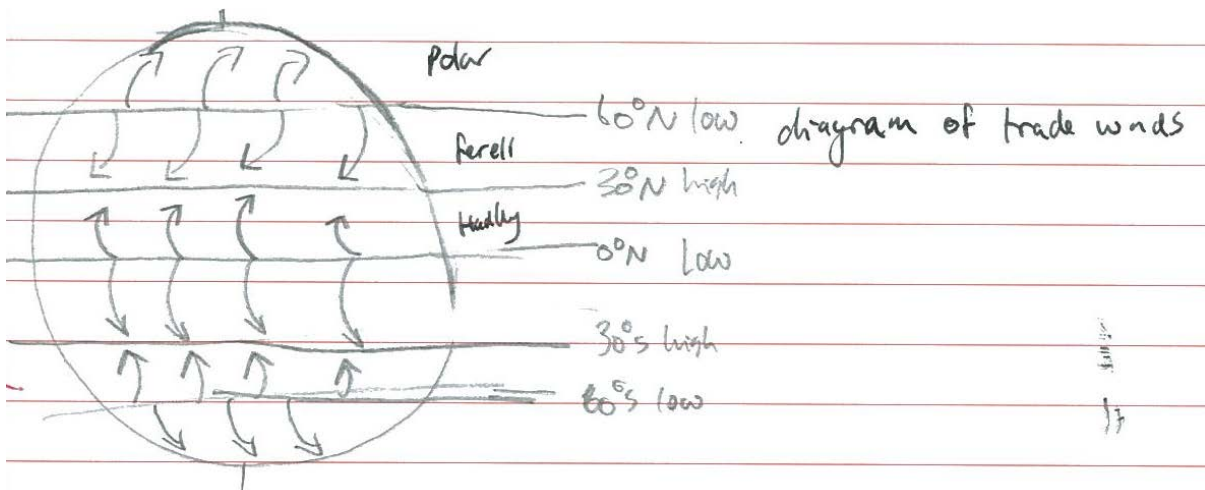 Polar
60°N low
diagram of trade winds
ferell
30°N high
Hadly
0°N Low
30°S high
60°S low